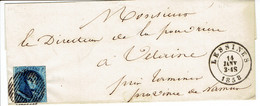 Monsieur
le Directeur de la poudrière
à Vedrin
près
province de Namur
LESSINES
14
JANV
3-4S
1858